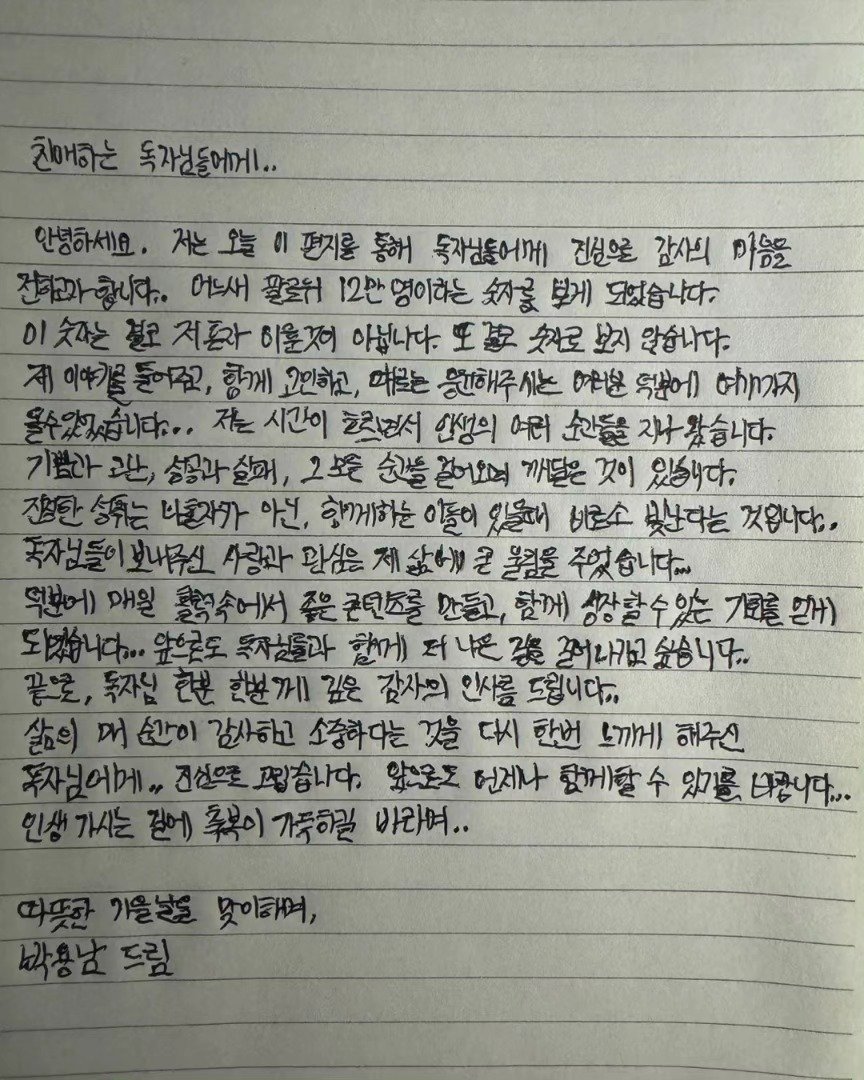 친애하는 독자님들에게..
안녕하세요. 저는 오늘 이 편지를 통해 독자님들에게 진심으로 감사의 마음을
전하고자 합니다.. 어느새 팔로워 12만 명이라는 숫자를 보게 되었습니다.
이 숫자는 결코 저 혼자 이룬것이 아닙니다. 또 결코 숫자로 보지 않습니다.
제 이야기를 들어주고, 함께 고민하고, 때로는 응원해주시는 여러분 덕분에 여기까지
올수있었습니다... 저는 시간이 흐르면서 인생의 여러 순간들을 지나 왔습니다.
기쁨과 고난, 성공과 실패, 그 모든 순간을 걸어오며 깨달은 것이 있습니다.
진정한 성취는 나혼자가 아닌, 함께하는 이들이 있을때 비로소 빛난다는 것입니다..
독자님들이 보내주신 사랑과 관심은 제 삶에 큰 울림을 주었습니다...
덕분에 매일 활력속에서 좋은 콘텐츠를 만들고, 함께 성장할 수 있는 기회를 얻게
되었습니다... 앞으로도 독자님들과 함께 더 나은 길을 걸어나가고 싶습니다..
끝으로, 독자님 한분 한분께 깊은 감사의 인사를 드립니다..
삶의 매 순간이 감사하고 소중하다는 것을 다시 한번 느끼게 해주신
독자님에게.. 진심으로 고맙습니다. 앞으로도 언제나 함께할 수 있기를 바랍니다...
인생 가시는 길에 축복이 가득하길 바라며..
따뜻한 가을날을 맞이하며,
박용남 드림